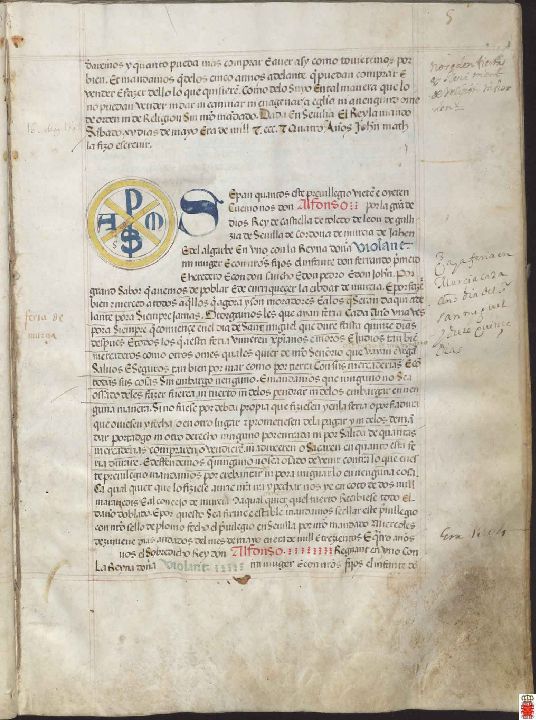 5
daremos y quanto pueda mas comprar e auer assy como touieremos por
bien. Et mandamos que de los cinco annos adelante que puedan comprar e
vender e fazer dello lo que quisiere. Como de lo suyo en tal manera que lo
no puedan vender ni dar ni camiar ni enagenar a eglia ni a ninguno ome
de orden ni de Religion sin nro mandado. Dada en Seuilla El Rey la mando
Sabado xv dias de mayo Era de mill t ccc t Quatro Años John math
la fizo escreuir.
Sepan quantos este preuillegio vieren e oyeren
Cuemo nos don Alfonso por la gra de
dios Rey de castella de toledo de leon de galli
zia de Seuilla de Cordoua de murcia de Jahen
E del algarbe En vno con la Reyna doña Violant
mi muger E con nros fijos el infante don ferrando primero
E heredero E con don Sancho E don pedro E don John. Por
grand sabor que auemos de poblar E de enrriqueçer la cibdat de murcia. E por fazer
bien e merced a todos aqllos que agora y son moradores E a los que seran daqui ade
lante pora siempre jamas. Otorgamos les que ayan feria Cada Año vna ves
pora siempre que comiençe en el dia de Sant miguel que dure fasta quinze dias
despues E todos los que a esta feria vinieren xpianos e moros E judios tan bien
mercaderos como otros omes quales quier de nro Señorio que vayan e vengan
saluos E seguros tan bien por mar como por tierra Con sus mercaderias E con
todas sus cosas Sin embargo ninguno. E mandamos que ninguno no sea
osado de les fazer fuerça ni tuerto ni de los pendrar ni de los embargar en nin
guna manera. Sino fuese por debda propia que fiziesen y en la feria o por fiadura
que ouiesen y fecha o en otro lugar e prometiesen de la pagar y
dar portadgo ni otro derecho ninguno por entrada ni por salida de quantas
mercaderias compraren o vendieren aduxeren o sacaren en quanto esta fe
ria durare. E defendemos que ninguno no sea osado de venir contra lo que en es
te preuillegio mandamos por crebantar ni pora minguar lo en ninguna cosa.
Ca qual quier que lo fiziese aurie nra yra y pechar nos ye en coto dos mill
marauedis E al concejo de murcia o a qual quier quel tuerto Recibiese todo el
daño doblado. E por que esto sea firme e estable mandamos seellar este preuillegio
con nro sello de plomo fecho el preuillegio en Seuilla por nro mandado Miercoles
dezinueue dias andados del mes de mayo en era de mill E trezientos E quatro años
E nos el Sobredicho Rey don Alfonso Regnant en vno Con
La Reyna doña Violant mi muger E con nros fijos el infante do
feria de
murçia